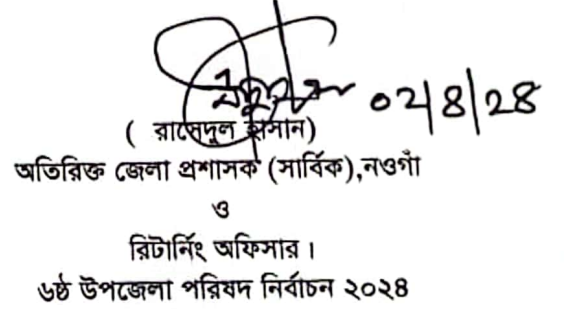 ০২/৪/২৪
( রাসেদুল
অতিরিক্ত জেলা প্রশাসক (সার্বিক),নওগাঁ
ও
রিটার্নিং অফিসার।
৬ষ্ঠ উপজেলা পরিষদ নির্বাচন ২০২৪